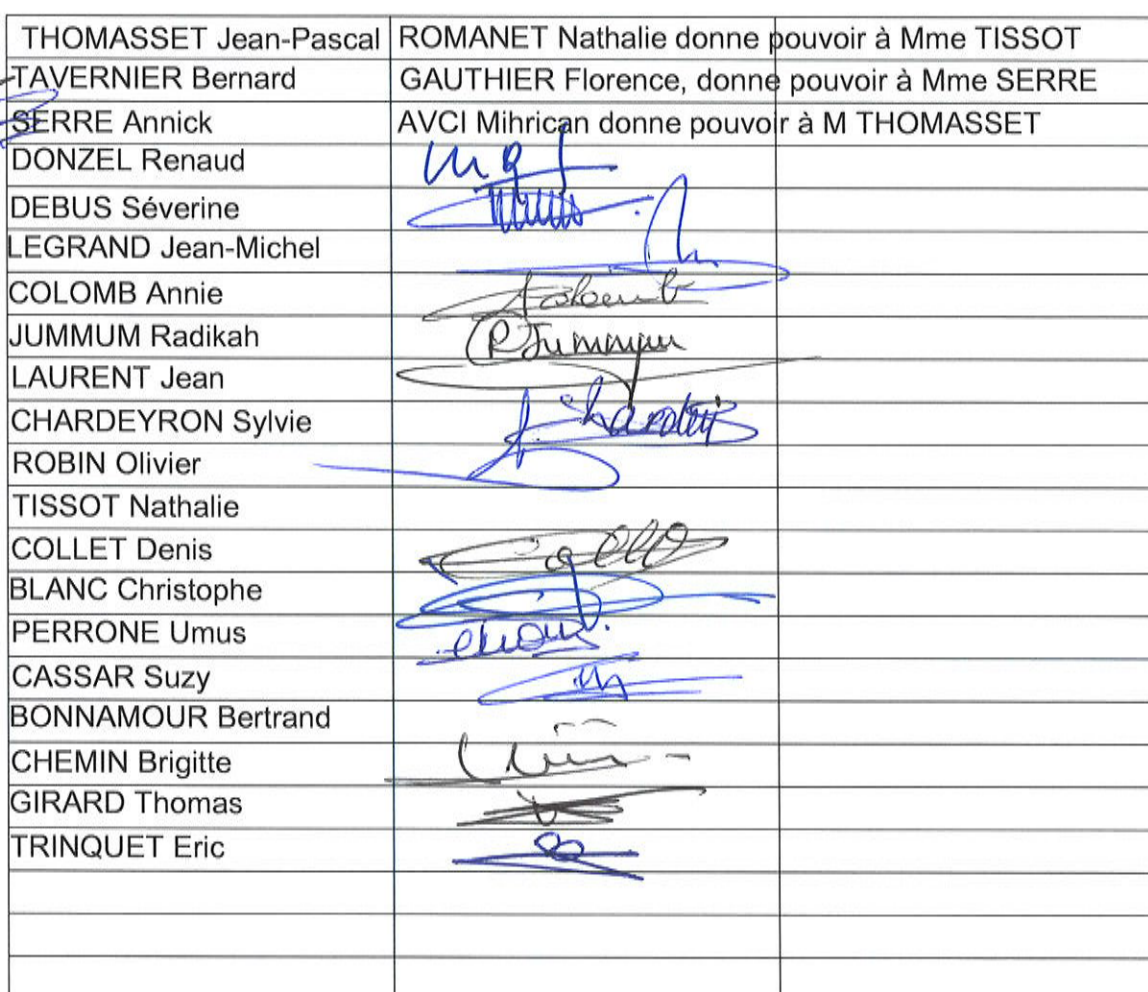 THOMASSET Jean-Pascal ROMANET Nathalie donne pouvoir à Mme TISSOT
TAVERNIER Bernard GAUTHIER Florence, donne pouvoir à Mme SERRE
SERRE Annick AVCI Mihrican donne pouvoir à M THOMASSET
DONZEL Renaud
DEBUS Séverine
LEGRAND Jean-Michel
COLOMB Annie
JUMMUM Radikah R Jummum
LAURENT Jean
CHARDEYRON Sylvie
ROBIN Olivier
TISSOT Nathalie
COLLET Denis
BLANC Christophe
PERRONE Umus
CASSAR Suzy
BONNAMOUR Bertrand
CHEMIN Brigitte
GIRARD Thomas
TRINQUET Eric